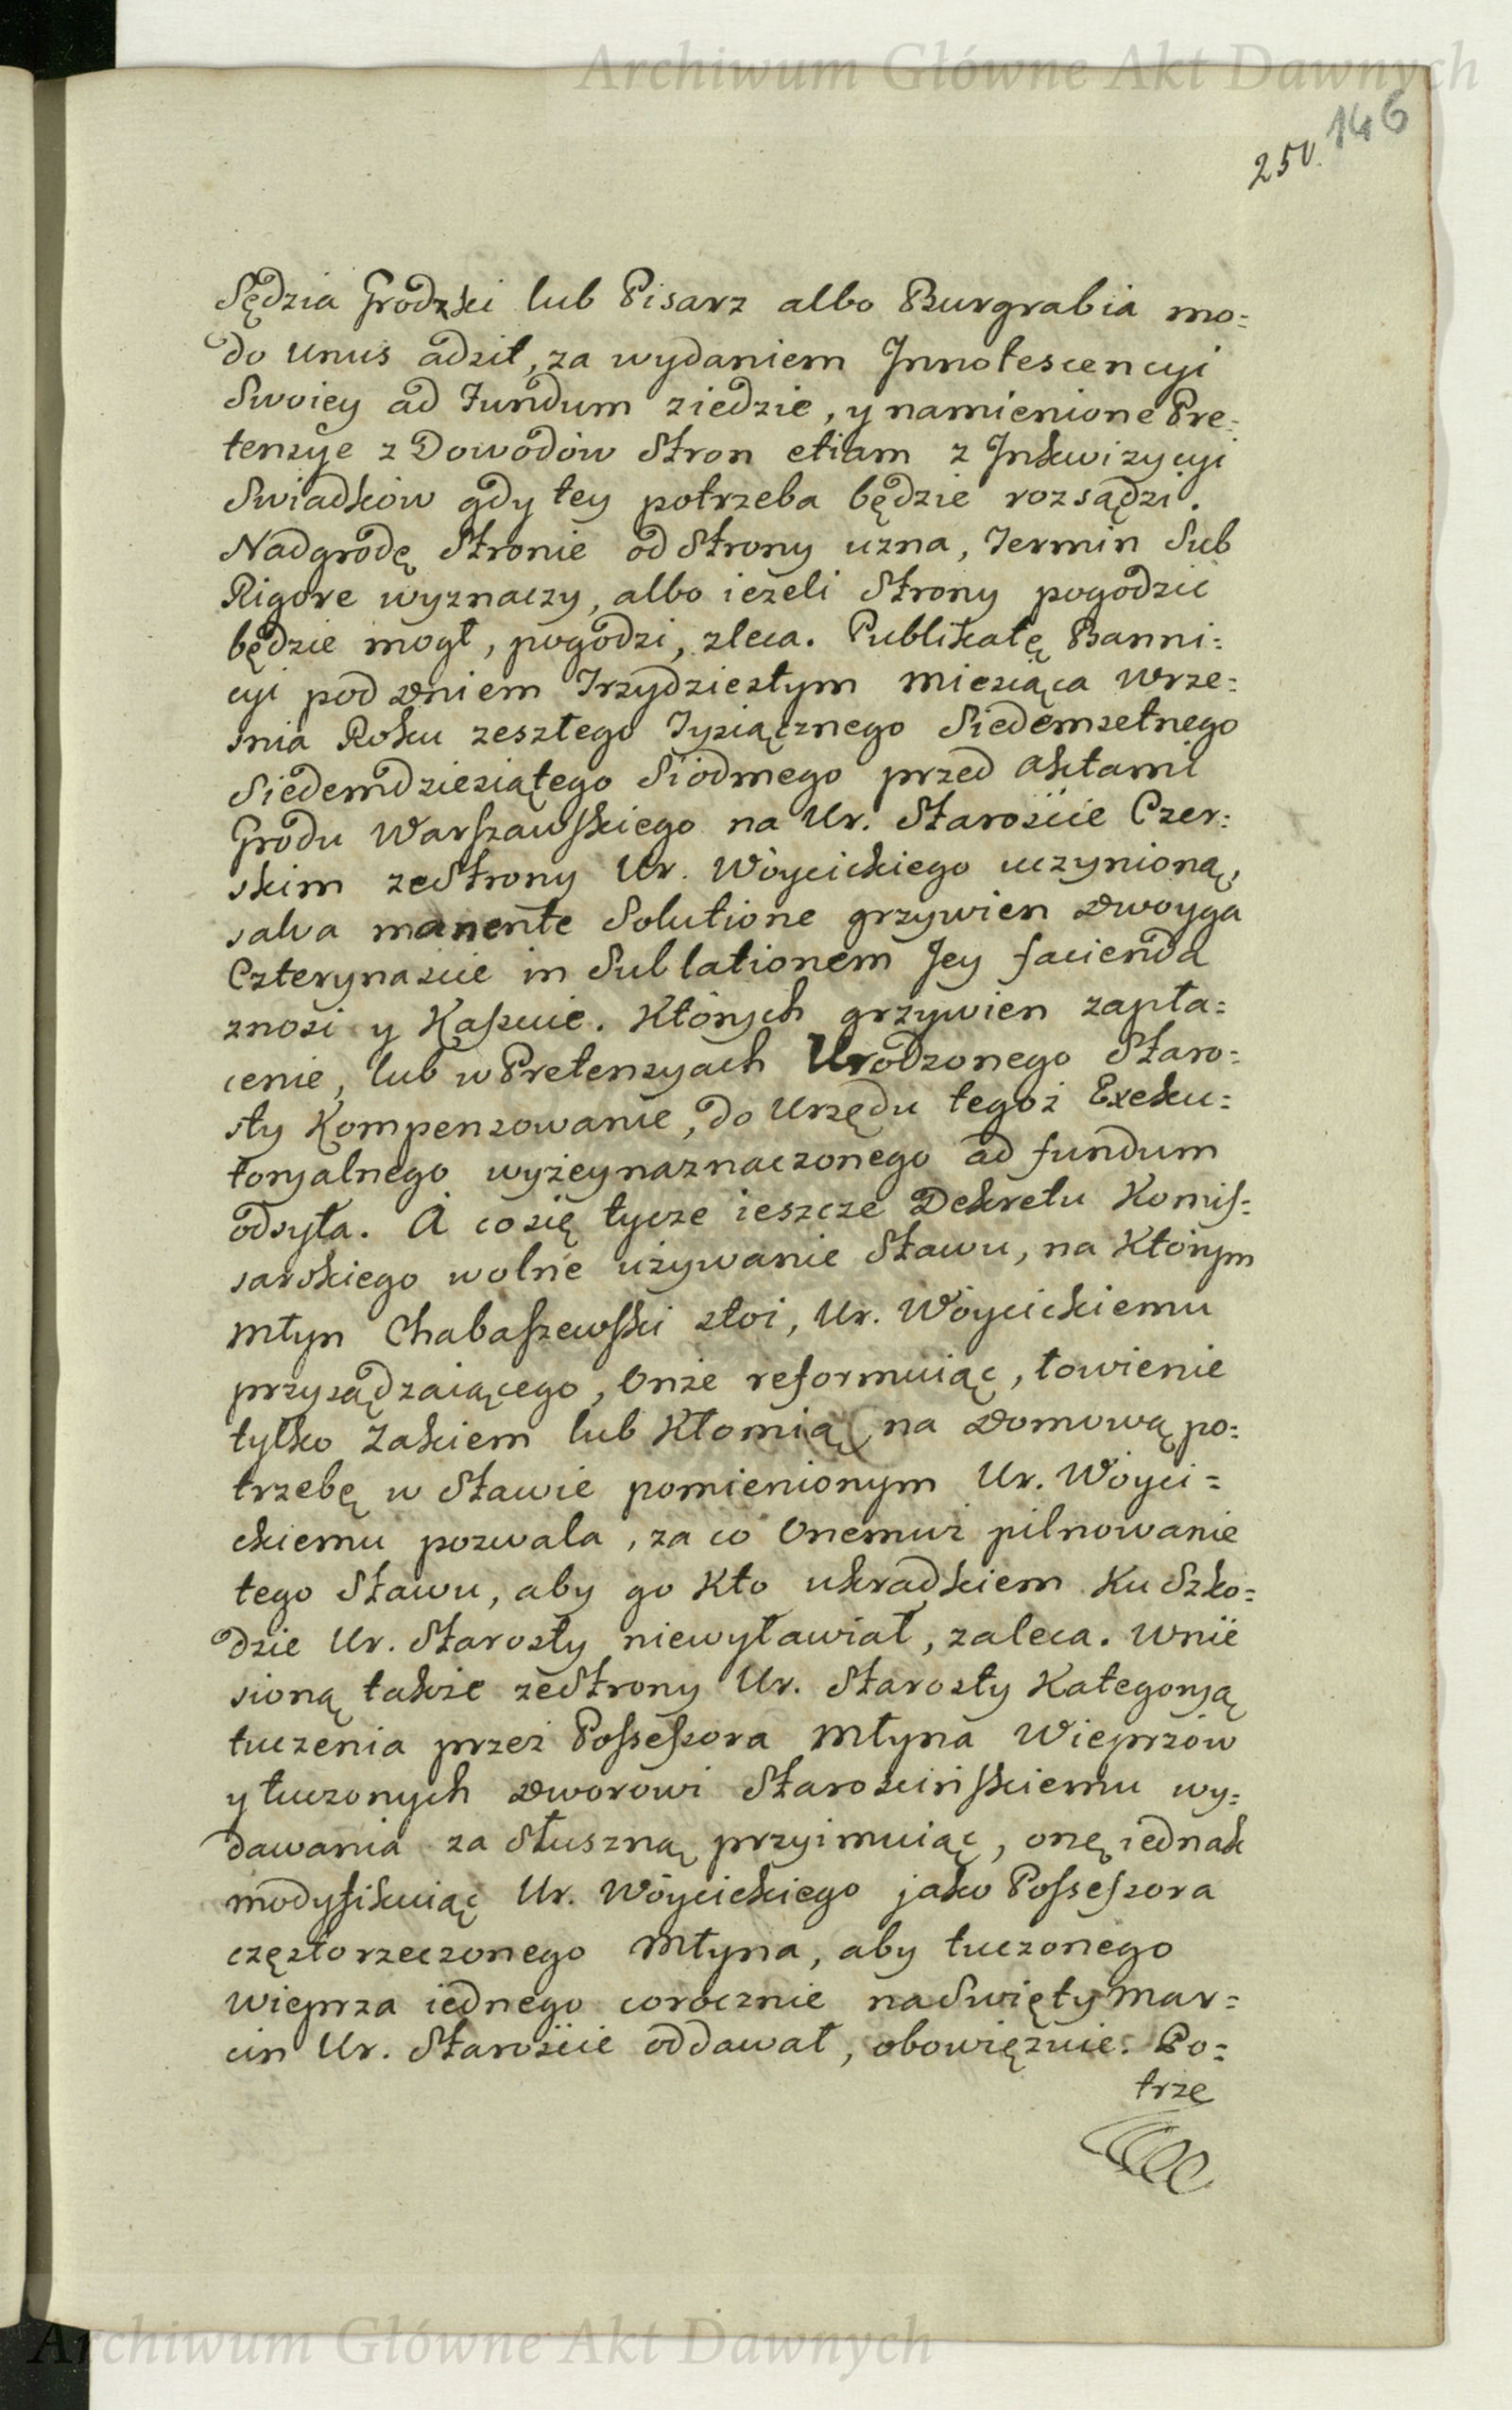 Archiwum Główne Akt Dawnych
146
250.
Sędzia Grodzki lub Pisarz albo Burgrabia mo=
do unus adsit, za wydaniem Innotescencyi
Swoiey ad Fundum ziedzie, y namienione Pre=
tensye z Dowodow Stron etiam z Inkwizycyi
Swiadkow gdy tey potrzeba będzie rozsądzi.
Nadgrodę Stronie od Strony uzna, Termin Sub
Rigore wyznaczy, albo ieżeli Strony pogodzic
będzie mogł, pogodzi, zleca. Publikatę Banni=
cyi pod dniem Trzydziestym Miesiąca Wrze=
snia Roku zeszłego Tysiącznego Siedemsetnego
Siedemdziesiątego Siodmego przed Aktami
Grodu Warszawskiego na Ur. Staroście Czer=
skim ze Strony Ur. Wòycickiego uczynioną,
salva manente Solutione grzywien dwoyga
Czterynascie in Sublationem Jey facienda
znosi y Kassuie. Których grzywien zapła=
cenie, lub w Pretensyach Urodzonego Staro=
sty Kompensowanie, do Urzędu tegoż Exeku=
toryalnego wyżey naznaczonego ad fundum
odsyła. A co się tycze ieszcze Dekretu Komis=
sarskiego wolne używanie Stawu, na Którym
Młyn Chabaszewski stoi, Ur. Wòycickiemu
przysądzaiącego, Onże reformuiąc, łowienie
tylko Żakiem lub Kłomią na domową po=
trzebę w Stawie pomienionym Ur. Wòyci=
ckiemu pozwala, za co Onemuż pilnowanie
tego Stawu, aby go Kto ukradkiem Ku Szko=
dzie Ur. Starosty niewyławiał, zaleca. Wnie
sioną także ze Strony Ur. Starosty Kategoryą
tuczenia przez Possessora Młyna Wieprzów
y tuczonych dworowi Starościńskiemu wy=
dawania za Słuszną przyimuiąc, onę iednak
modyfikuiąc Ur. Wòycickiego jako Possessora
częstorzeczonego Młyna, aby tuczonego
Wieprza iednego corocznie na Święty Mar=
cin Ur. Starościе oddawał, obowięzuie. Po=
trze
Archiwum Główne Akt Dawnych